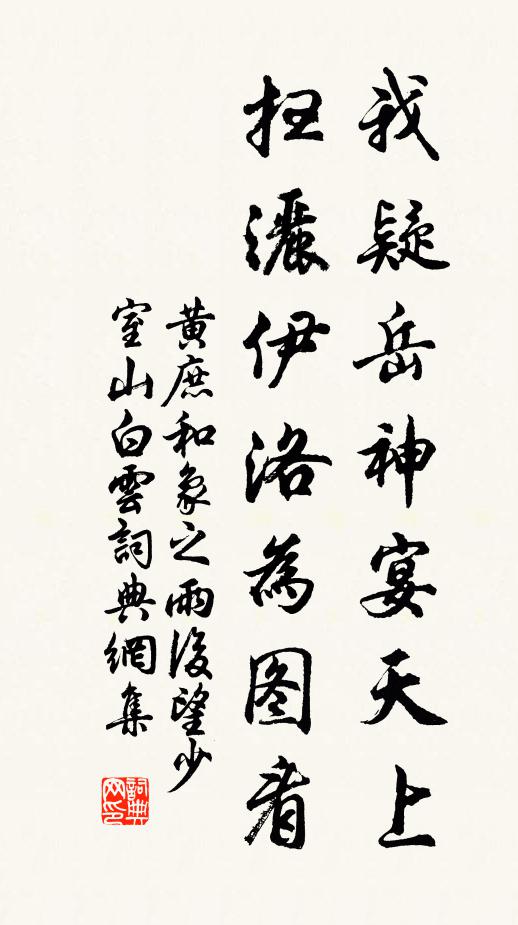 我疑岳神宴天上
扫灑伊洛為图看
黄庶和象之雨後望少
室山白雲詞典網集
詞典
网印